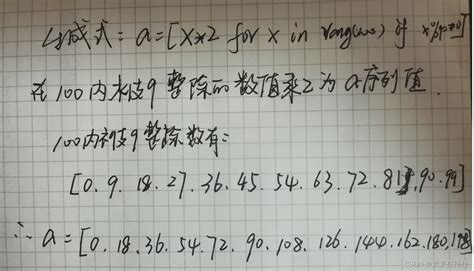 生成式: a=[x*2 for x in rang(100) if x%9==0]
在100内求被9整除的数值乘2为a序列值.
100内被9整除数有:
[0.9.18.27.36.45.54.63.72.81.90.99]
∴ a=[0.18.36.54.72.90.108.126.144.162.180.198]